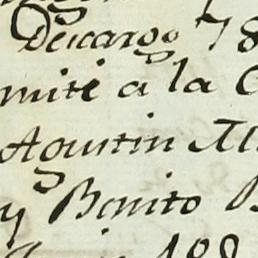 Descargo 78
mite a la C
Agustin M
y Benito B
188